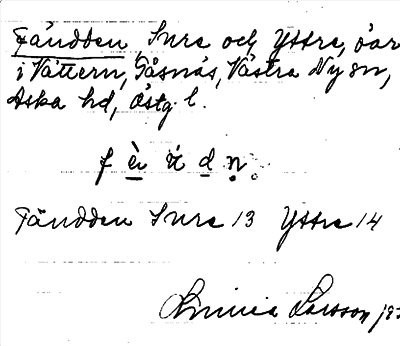 Fändden Inre och Yttre, öar
i Vättern, Gåsnäs, Västra Ny sn,
Aska hd, Östg. l.
Fändden Inre 13 Yttre 14
Linnea Larsson